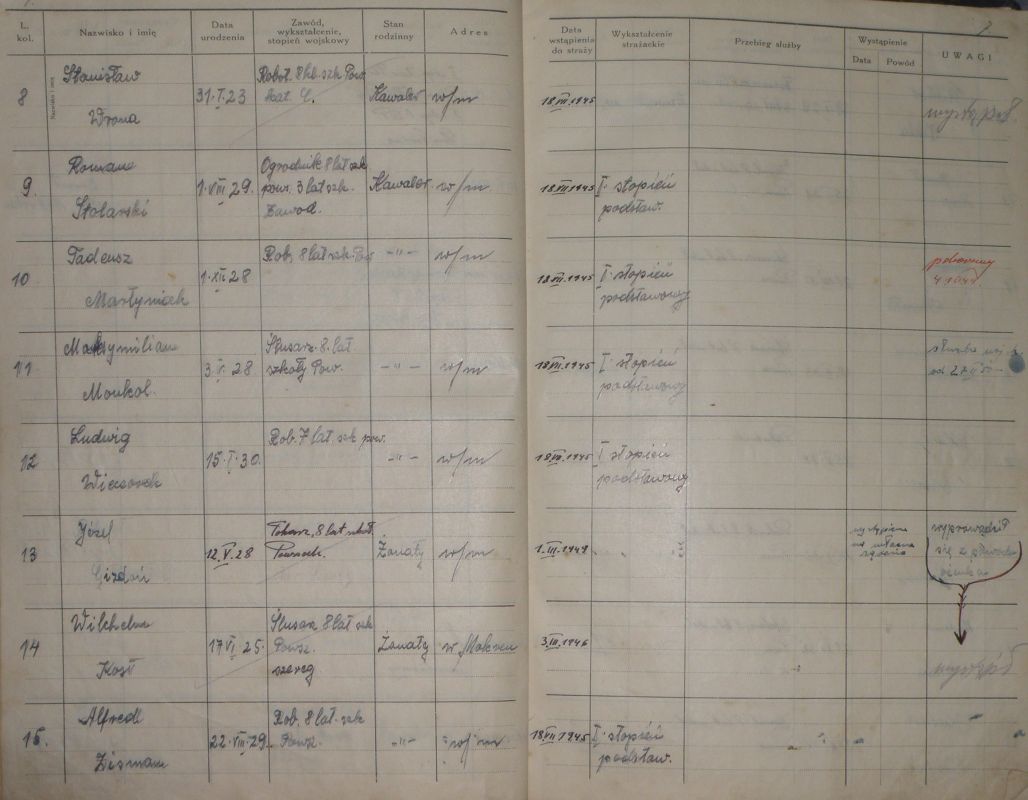 L. kol.
Nazwisko i imię
Data urodzenia
Zawód, wykształcenie, stopień wojskowy
Stan rodzinny
Adres
Data wstąpienia do straży
Wykształcenie strażackie
Przebieg służby
Wystąpienie
Data
Powód
UWAGI
8
Stanisław
Wrona
31.I.23
Robot. 8 kl. szk. Pow.
kat.
Kawaler
w/m
18.VII.1945
wystąpił
9.
Roman
Stolarski
1.VIII.29.
Ogrodnik 8 lat szk
pow. 3 lat szk.
Zawod.
Kawaler
w/m
18.VII.1945
I. stopień
podstaw.
10
Tadeusz
Martyniak
1.XII.28
Rob. 8 lat szk. Pow
-"-
w/m
18.VII.1945
I. stopień
podstawowy
11.
Maksymilian
3.V.28
Ślusarz. 8. lat
szkoły Pow.
-"-
w/m
18.VII.1945
I. stopień
podstawowy
służba woj.
od
12
Ludwig
Wieczorek
15.I.30.
Rob. 7 lat szk pow.
-"-
w/m
18.VII.1945
I stopień
podstawowy
13
Józef
12.V.28
Tokarz, 8 lat szkoł.
Powszech.
Żonaty
w/m
1.III.1949
wyprowadził
się z
14
Wilhelm
17.VI.25.
Ślusarz 8 lat szk
Powsz.
szereg
Żonaty
3.III.1946
wystąpił
15.
Alfred
Zisman
22.VIII.29.
Rob. 8 lat. szk
Powsz.
-"-
w/m
18.VII.1945
I. stopień
podstaw.